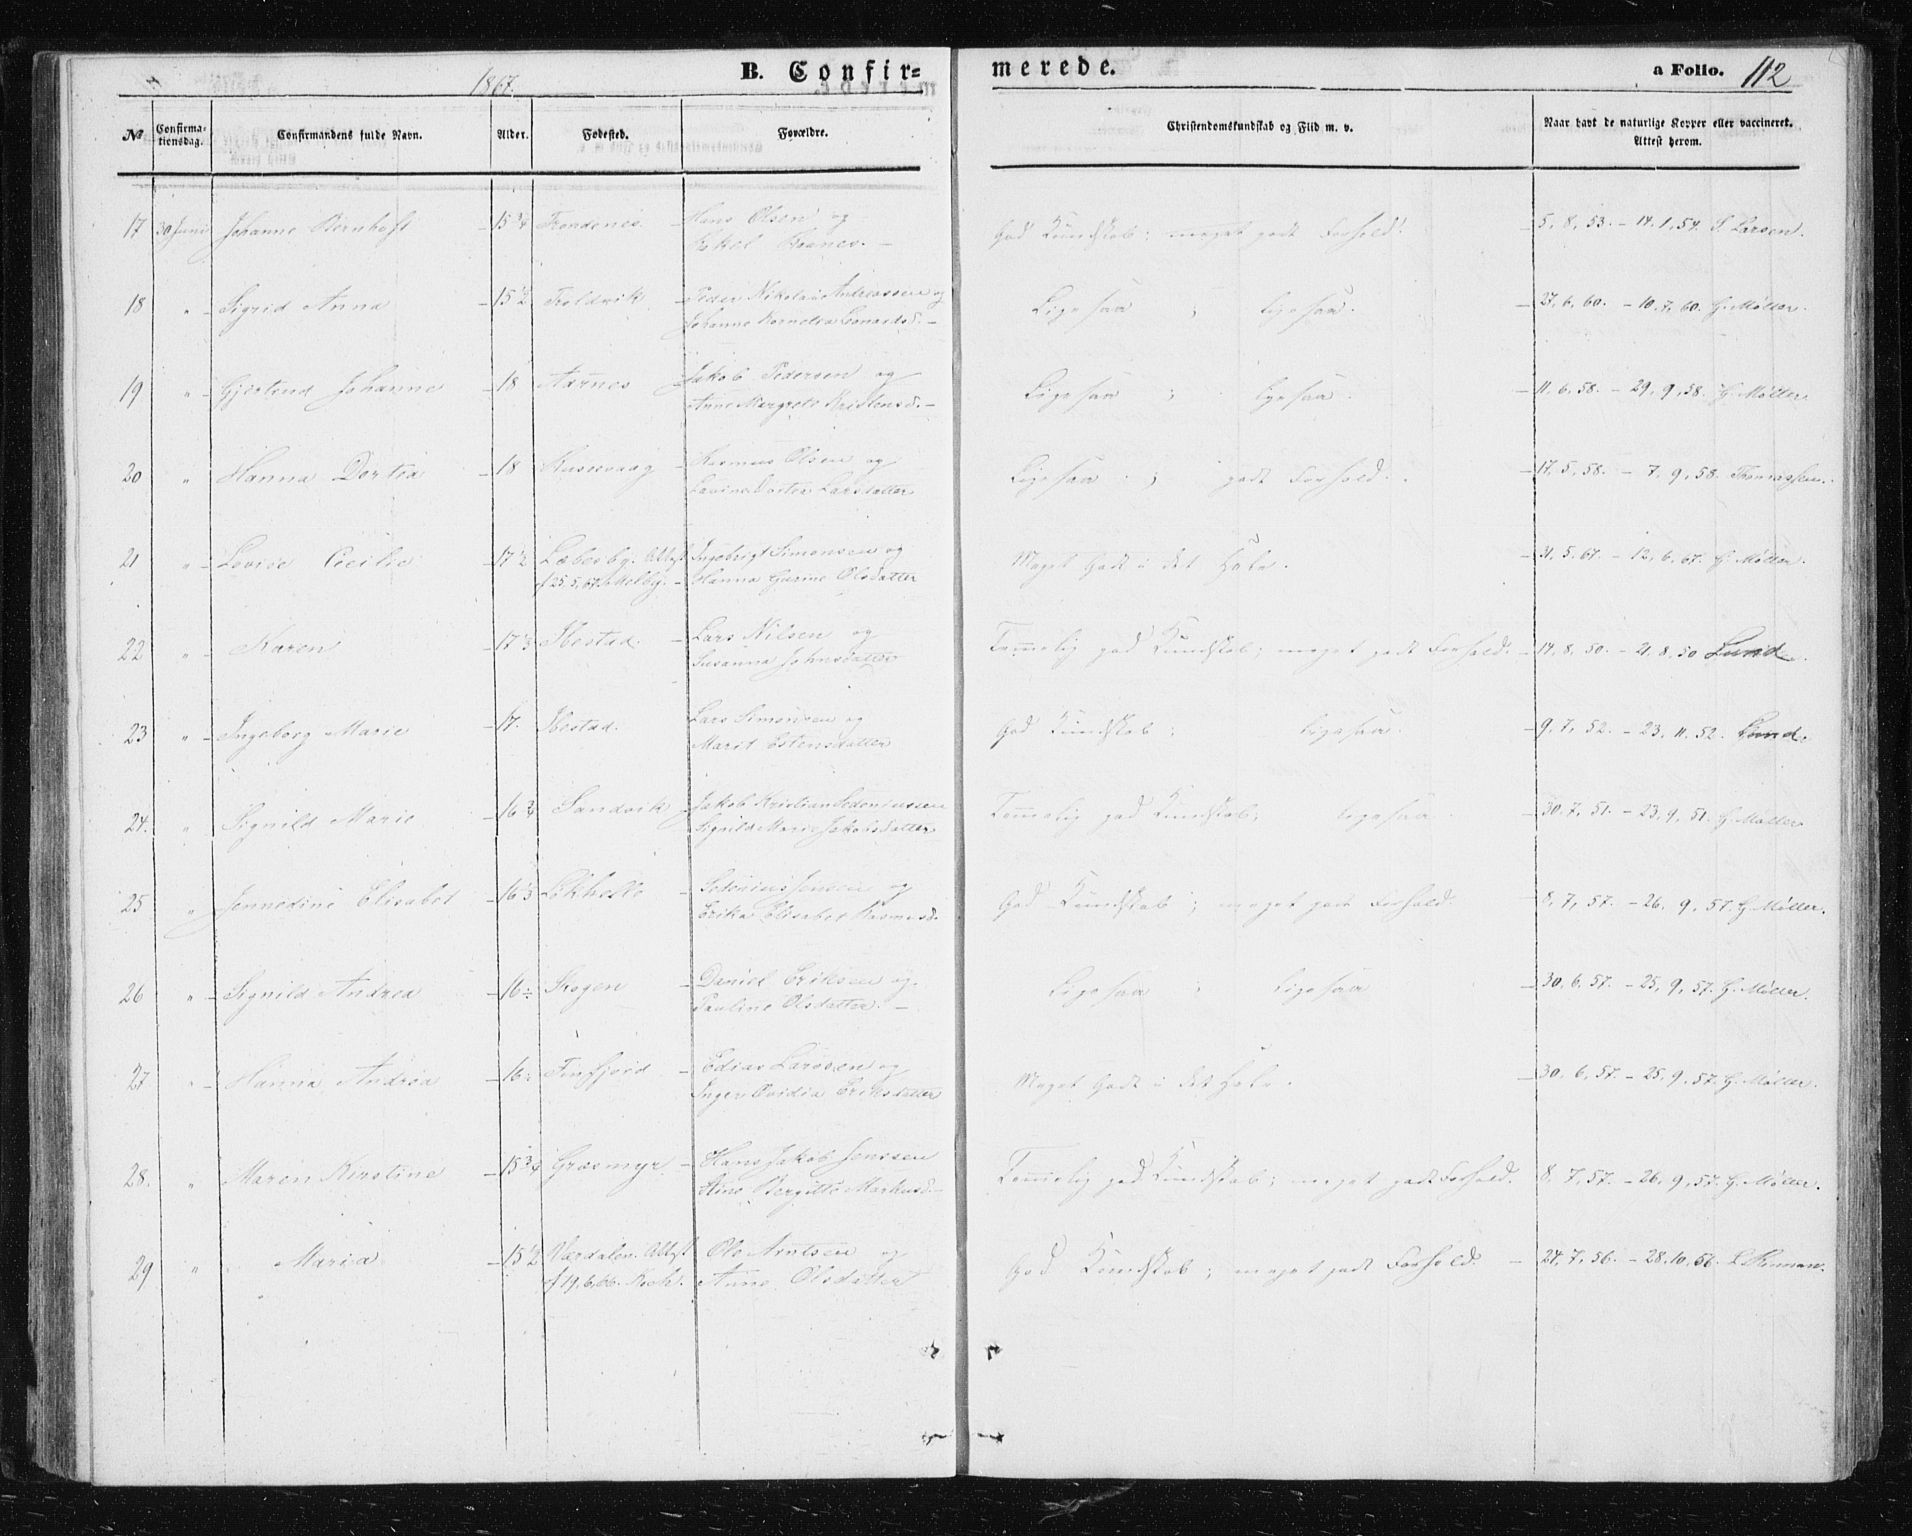 1867.
B. Confir=
merede.
a Folio. 112
No
Confirma-
tionsdag.
Confirmandens fulde Navn.
Alder.
Fødested.
Forældre.
Christendomskundskab og Flid m. v.
Naar havt de naturlige Kopper eller vaccineret.
Attest herom.
17 30 Juni Johanne Bernhoft 15 3/4 Trondenes. Hans Olsen og God Kundskab; meget godt Forhold. 5, 8, 53. - 14. 1, 54. S. Larsen.
18 " Sigrid Anna 15 1/2 Troldvik Peder Nikolai Andreassen og Ligesaa ; ligesaa. 27, 6, 60. - 10, 7, 60. H. Møller.
Johanne Kornelia Leonardsd. -
19 " Gjertrud Johanne 18 Aarnes Jakob Pedersen og Ligesaa ; ligesaa. 11, 6, 58. - 29, 9, 58. H. Møller.
Anne Margrete Kristensd. -
20 " Hanna Dortea 18 Rasmus Olsen og Ligesaa ; godt Forhold. 17, 5, 58. - 7, 9, 58. Thomassen.
Dortea Larsdatter
21 " Lovise Cecilie 17 1/2 Læbesby. Attest Ingebrigt Simonsen og Meget Godt i det Hele. 31, 5, 67. - 12, 6, 67. H. Møller.
f 25, 5, 67. Melby. - Hanna Gurine Olsdatter
22 " Karen 17 1/3 Ibestad. Lars Nilsen og Temmelig god Kundskab; meget godt Forhold. 14, 8, 50. - 21, 8, 50 Lund.
Susanna Johnsdatter
23 " Ingeborg Marie 17. Ibestad. Lars Simonsen og God Kundskab ; ligesaa. 9, 7, 52. - 23, 11, 52. Lund.
Marit Estensdatter
24. " Signild Marie 16 3/4 Sandvik Jakob Kristian Sedeniussen Temmelig god Kundskab; ligesaa 30, 7, 51. - 23, 9, 51. H. Møller
Signild Marie Jakobsdatter
25 " Jennedine Elisabet 16 1/3 Lekhelle Sedenius Jensen og God Kundskab ; meget godt Forhold. 8, 7, 57. - 26, 9, 57. H. Møller.
Erika Elisabet Rasmusd.
26 " Signild Andrea 16 Skogen Daniel Eriksen og Ligesaa ; ligesaa 30, 6, 57. - 25, 9, 57. H. Møller.
Pauline Olsdatter. -
27 " Hanna Andrea 16 Finfjord Edias Larssen og Meget Godt i det Hele. 30, 6, 57. - 25, 9, 57. H. Møller.
Inger Ovidia Eriksdatter
28. " Maren Kirstine 15 3/4 Græsmyr Hans Jakob Jenssen Temmelig god Kundskab; meget godt Forhold. 8, 7, 57. - 26, 9, 57. H. Møller.
Bergitte Markusd. -
29 " Maria 15 1/2 Værdalen. Attest Ole Arntsen og God Kundskab ; meget godt Forhold. 24, 7, 56. - 28, 10, 56.
f 19, 6, 66. Anne Olsdatter